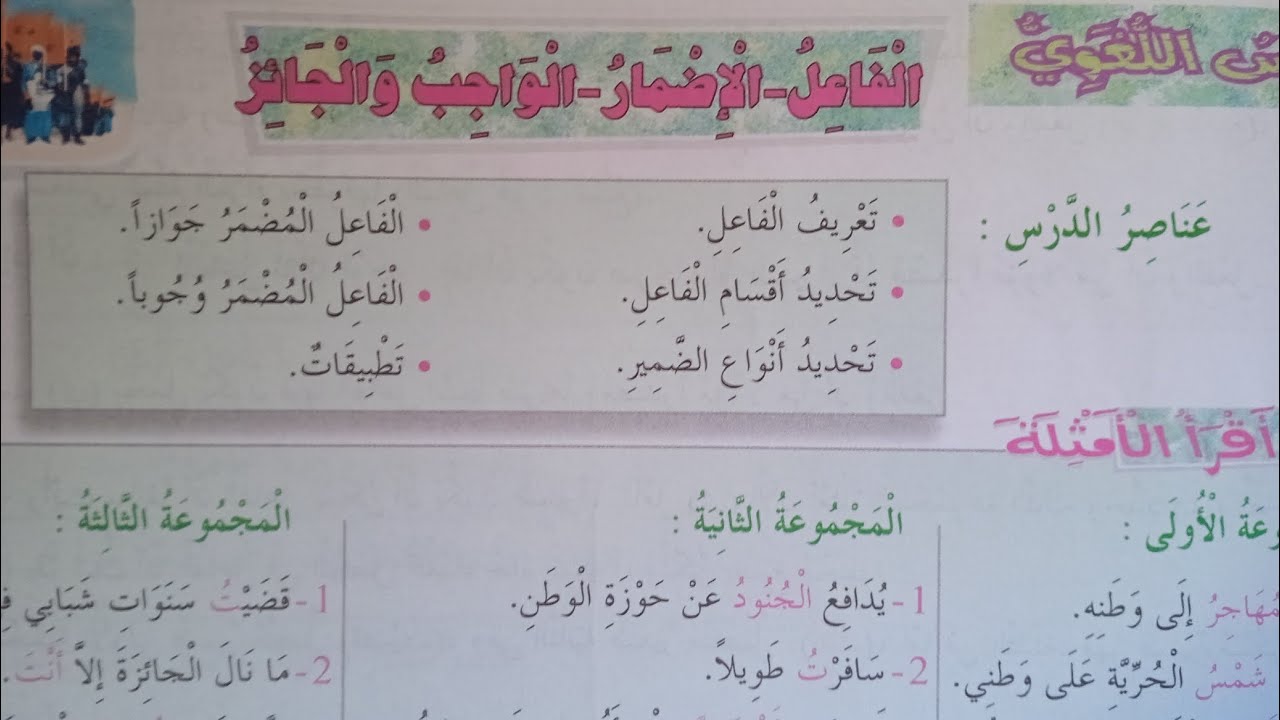 اللُّغَوِيُّ
الْفَاعِلُ-الْإِضْمَارُ-الْوَاجِبُ وَالْجَائِزُ
عَنَاصِرُ الدَّرْسِ :
• تَعْرِيفُ الْفَاعِلِ.
• تَحْدِيدُ أَقْسَامِ الْفَاعِلِ.
• تَحْدِيدُ أَنْوَاعِ الضَّمِيرِ.
• الْفَاعِلُ الْمُضْمَرُ جَوَازاً.
• الْفَاعِلُ الْمُضْمَرُ وُجُوباً.
• تَطْبِيقَاتٌ.
أَقْرَأُ الْأَمْثِلَةَ
الْأُولَى :
إِلَى وَطَنِهِ.
شَمْسُ الْحُرِّيَّةِ عَلَى وَطَنِي.
الْمَجْمُوعَةُ الثَّانِيَةُ :
1-يُدَافِعُ الْجُنُودُ عَنْ حَوْزَةِ الْوَطَنِ.
2-سَافَرْتُ طَوِيلاً.
الْمَجْمُوعَةُ الثَّالِثَةُ :
1-قَضَيْتُ سَنَوَاتِ شَبَابِي
2-مَا نَالَ الْجَائِزَةَ إِلاَّ أَنْتَ.